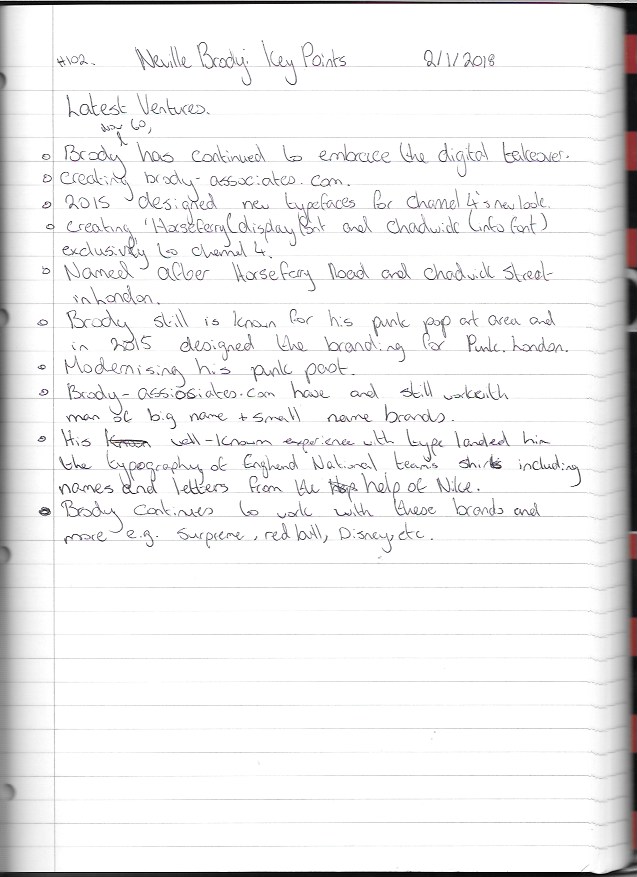 #102. Neville Brody: Key Points 2/1/2018
Latest Ventures.
now 60,
Brody has continued to embrace the digital takeover.
creating brody-associates.com.
2015 designed new typefaces for channel 4's new look.
creating 'Horseferry (display font and chadwick (info font)
exclusively to channel 4.
Named after Horseferry Road and chadwick street
in London.
Brody still is known for his punk pop art area and
in 2015 designed the branding for Punk. London.
Modernising his punk past.
Brody-assiosiates.com have and still
big name + small name brands.
His well-known experience with type landed him
the typography of England National team's shirts including
names and letters from the help of Nike.
Brody continues to work with these brands and
more e.g. Surpreme, red bull, Disney, etc.